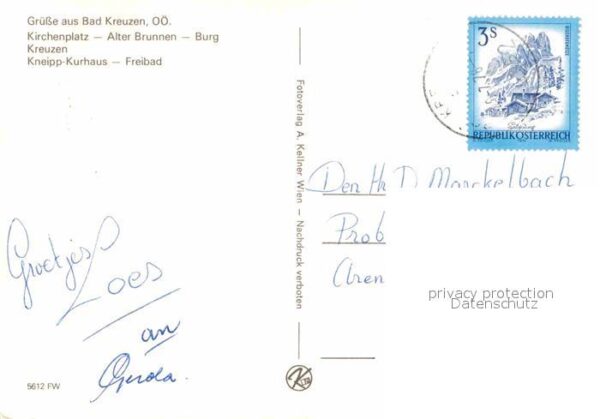 Grüße aus Bad Kreuzen, OÖ.
Kirchenplatz — Alter Brunnen — Burg
Kreuzen
Kneipp-Kurhaus — Freibad
3 S
REPUBLIK ÖSTERREICH
Fotoverlag A. Kellner Wien — Nachdruck verboten
Den Hr D. Monckelbach
Prob
Aren
privacy protection
Datenschutz
Groetjes
Loes
an
Gerda.
5612 FW